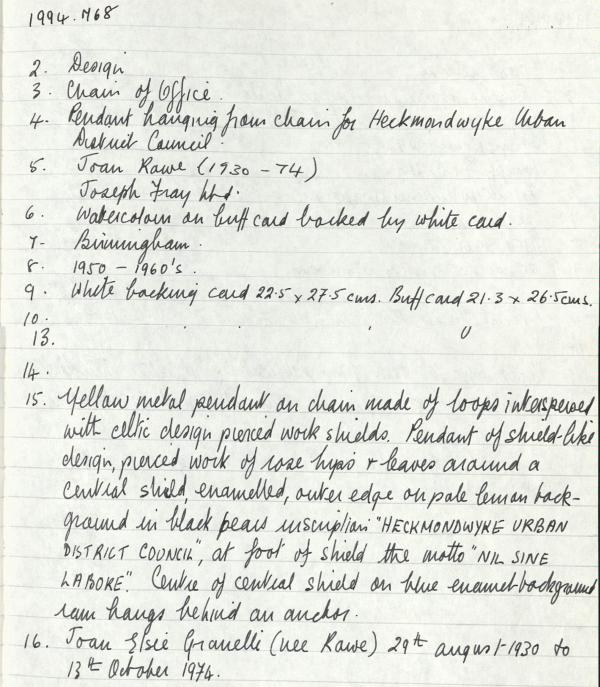 1994.M68
2. Design
3. Chain of Office.
4. Pendant hanging from chain for Heckmondwyke Urban
District Council.
5. Joan Rawe (1930 - 74)
Joseph Fray Ltd.
6. Watercolour on buff card backed by white card.
7- Birmingham.
8. 1950 - 1960's.
9. White backing card 22.5 x 27.5 cms. Buff card 21.3 x 26.5cms.
10.
13.
14.
15. Yellow metal pendant on chain made of loops interspersed
with celtic design pierced work shields. Pendant of shield-like
design, pierced work of rose hips + leaves around a
central shield, enamelled, outer edge on pale lemon back-
ground in black pears inscription "HECKMONDWYKE URBAN
DISTRICT COUNCIL", at foot of shield the motto "NIL SINE
LABORE". Centre of central shield on blue enamel background
ram hangs behind an anchor.
16. Joan Elsie Granelli (nee Rawe) 29th august 1930 to
13th October 1974.